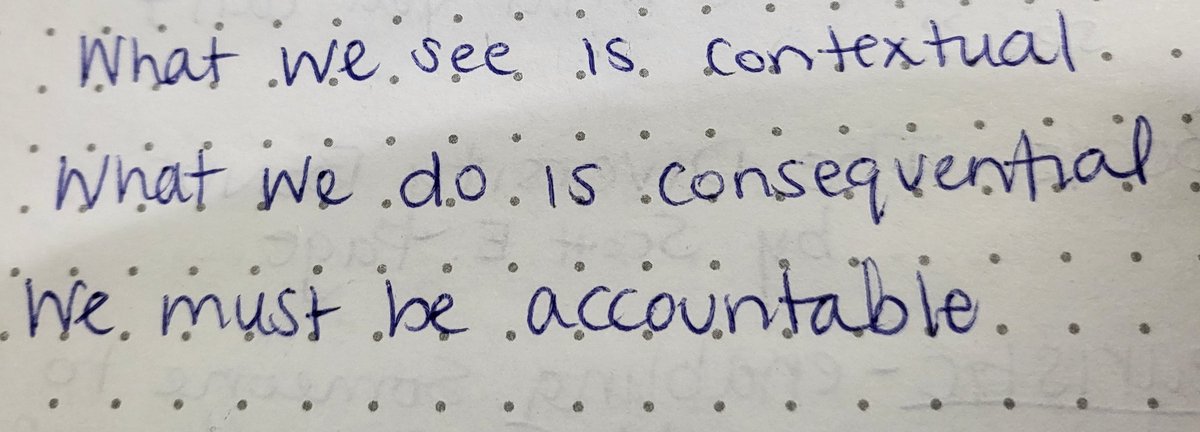 What we see is contextual.
What we do is consequential
We must be accountable.